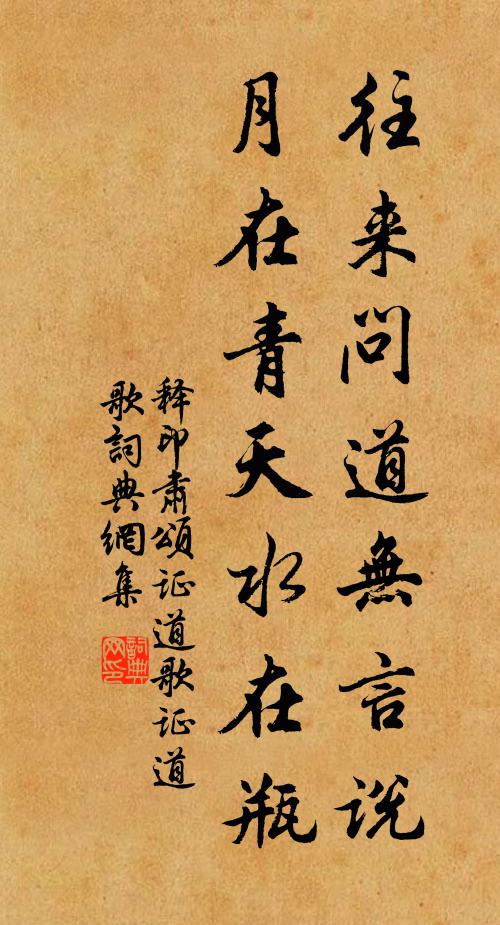 往来問道無言説
月在青天水在瓶
释印肃頌证道歌证道
歌詞典網集
詞典網印